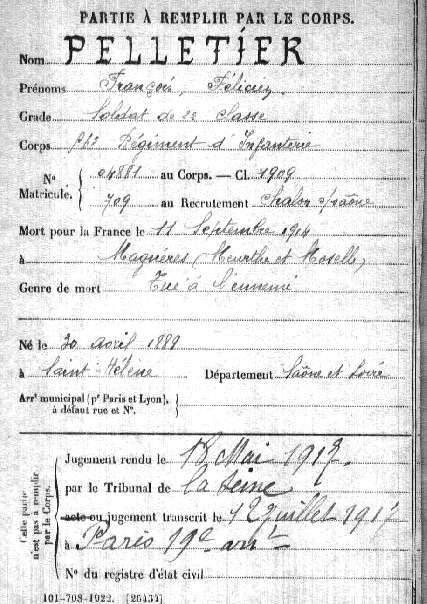 PARTIE À REMPLIR PAR LE CORPS.
Nom PELLETIER
Prénoms François, Félicien
Grade Soldat de 2e Classe
Corps Régiment d'Infanterie
Nº 04881 au Corps. — Cl. 1909
Matricule. 709 au Recrutement Chalon s/Saône
Mort pour la France le 11 Septembre 1914
à Magnières (Meurthe et Moselle)
Genre de mort Tué à l'ennemi
Né le 30 avril 1889
à Saint Hélène Département Saône et Loire
Arrt municipal (pr Paris et Lyon), à défaut rue et Nº.
Cette partie n'est pas à remplir par le Corps.
Jugement rendu le 18 Mai 1917.
par le Tribunal de la Seine
acte ou jugement transcrit le 12 juillet 1917
à Paris 19e arrt
Nº du registre d'état civil
101-708-1922. [26434]